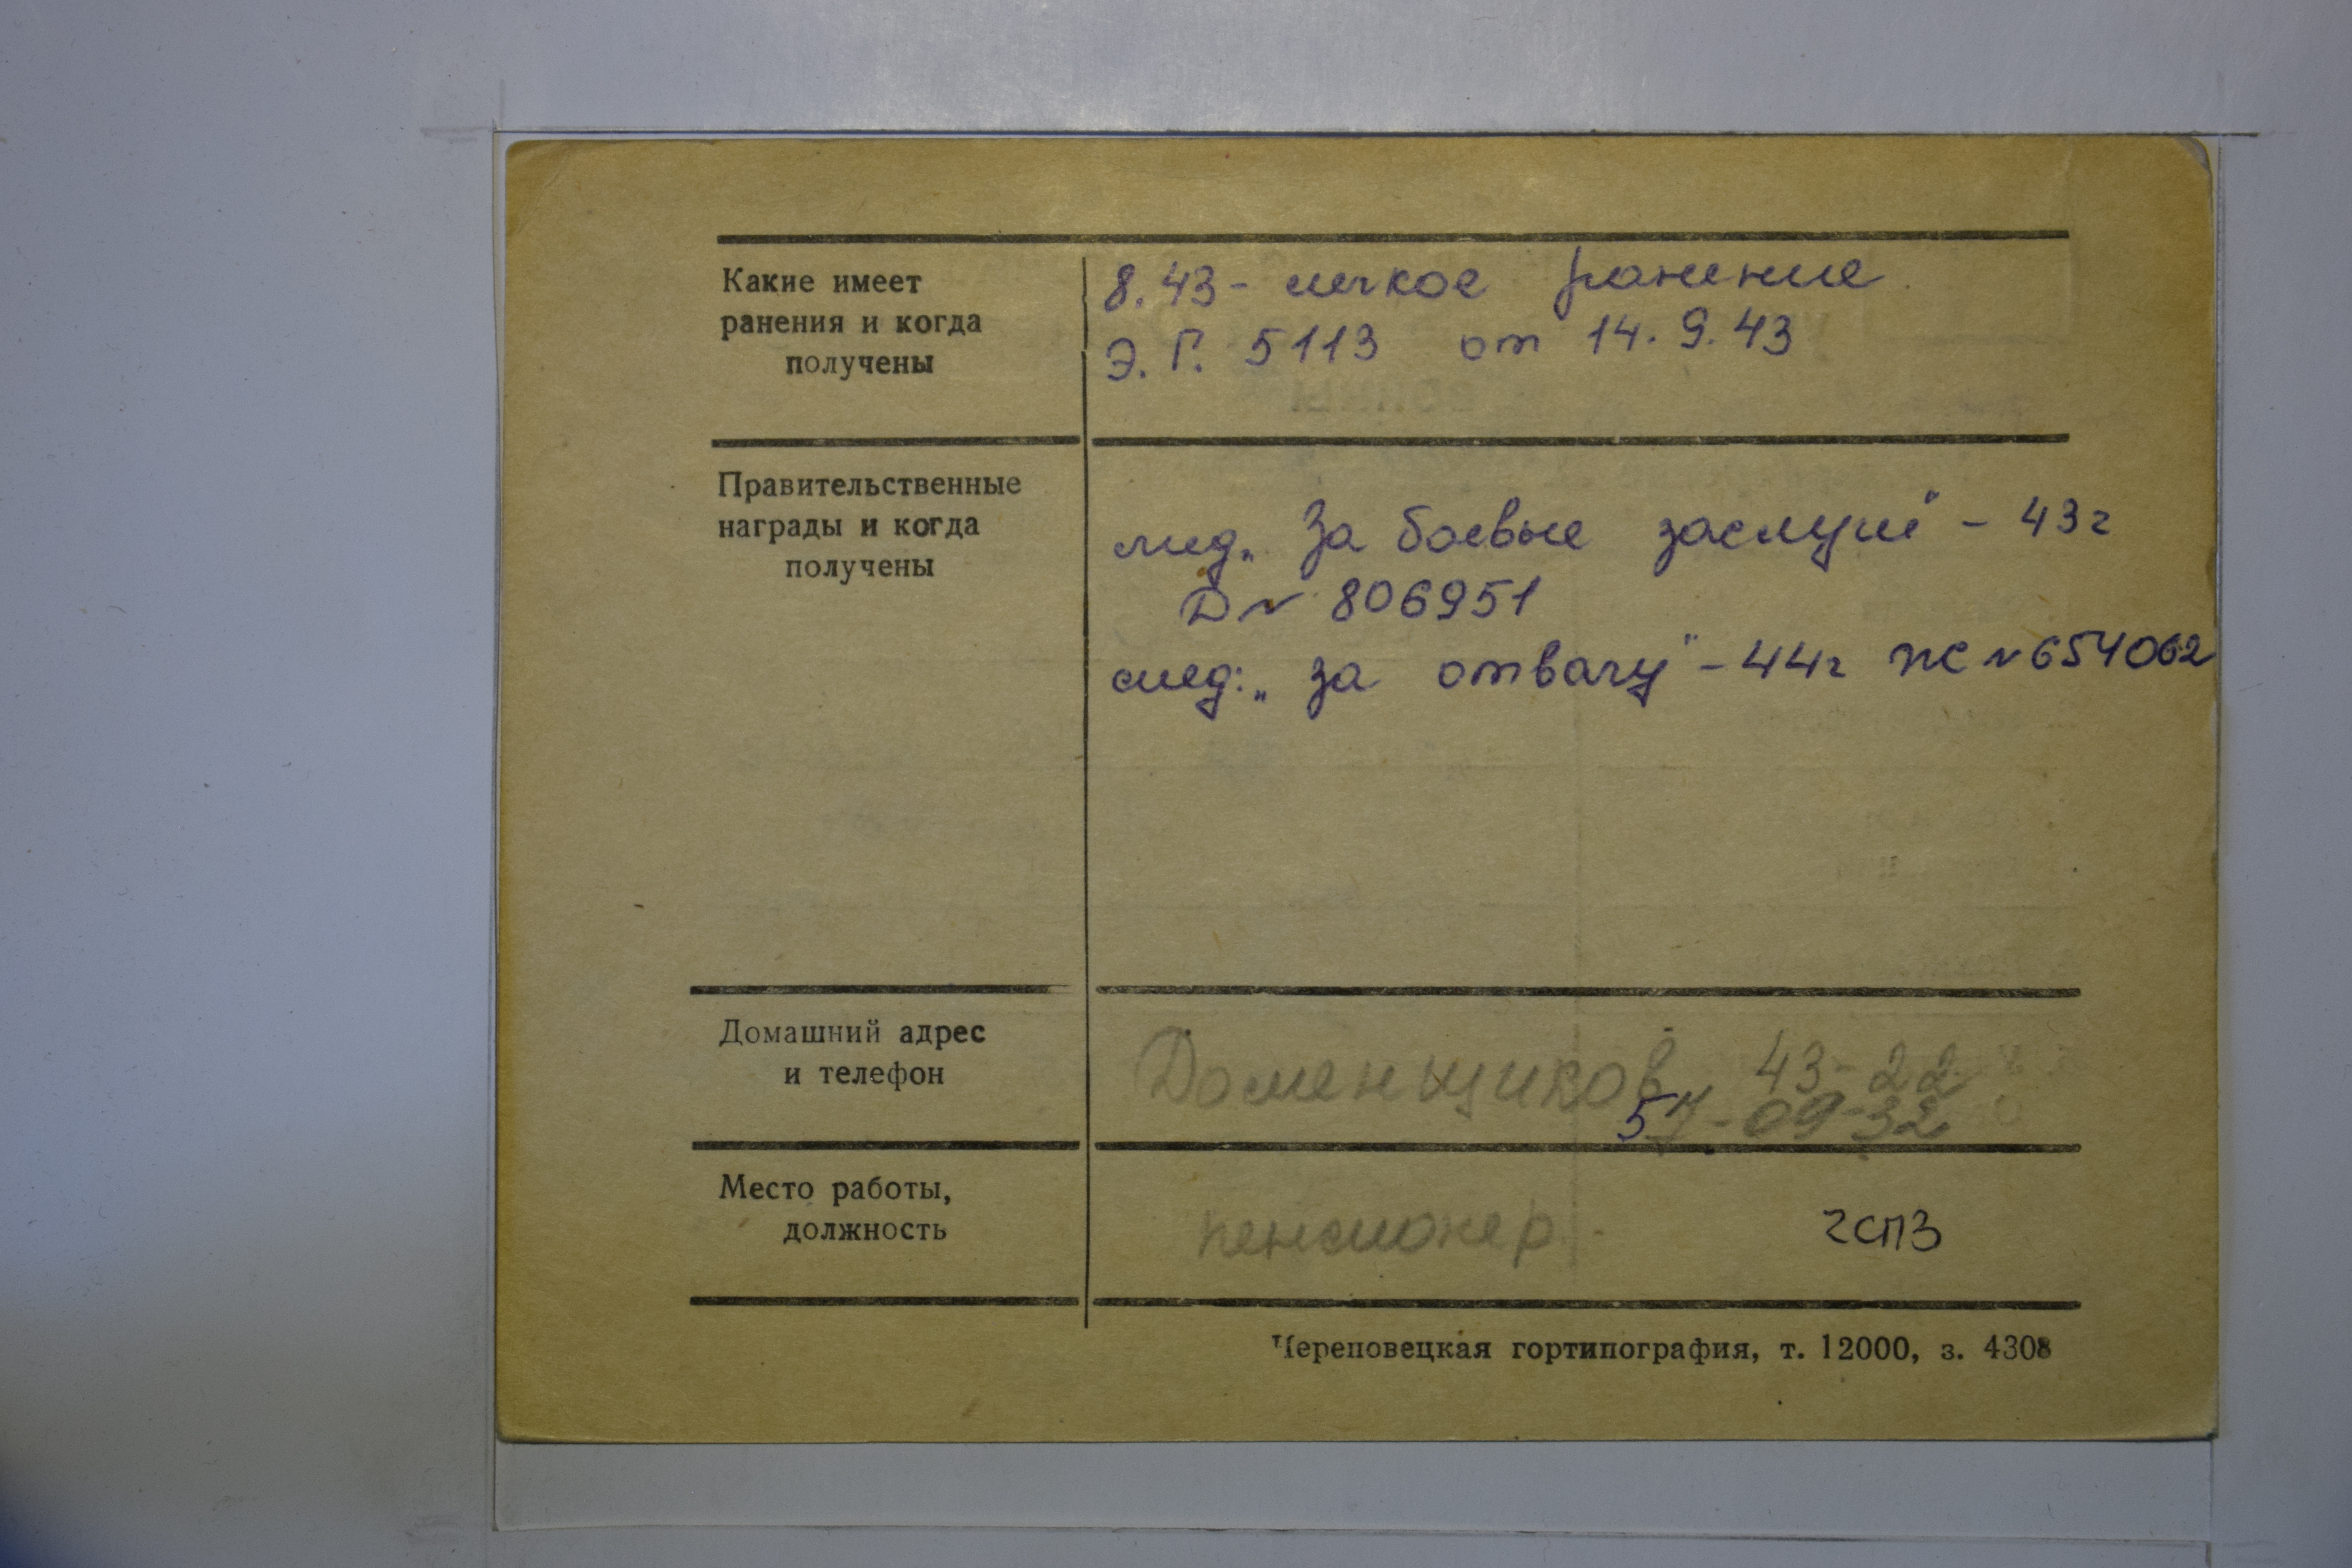 Какие имеет
ранения и когда
получены
8.43 - легкое ранение
Э. Г. 5113 от 14.9.43
Правительственные
награды и когда
получены
мед. „За боевые заслуги" - 43г
Д № 806951
мед: „за отвагу" - 44г Ж № 654062
Домашний адрес
и телефон
Доменщиков 43-22
57-09-32
Место работы,
должность
пенсионер. ЧСПЗ
Череповецкая гортипография, т. 12000, з. 4308